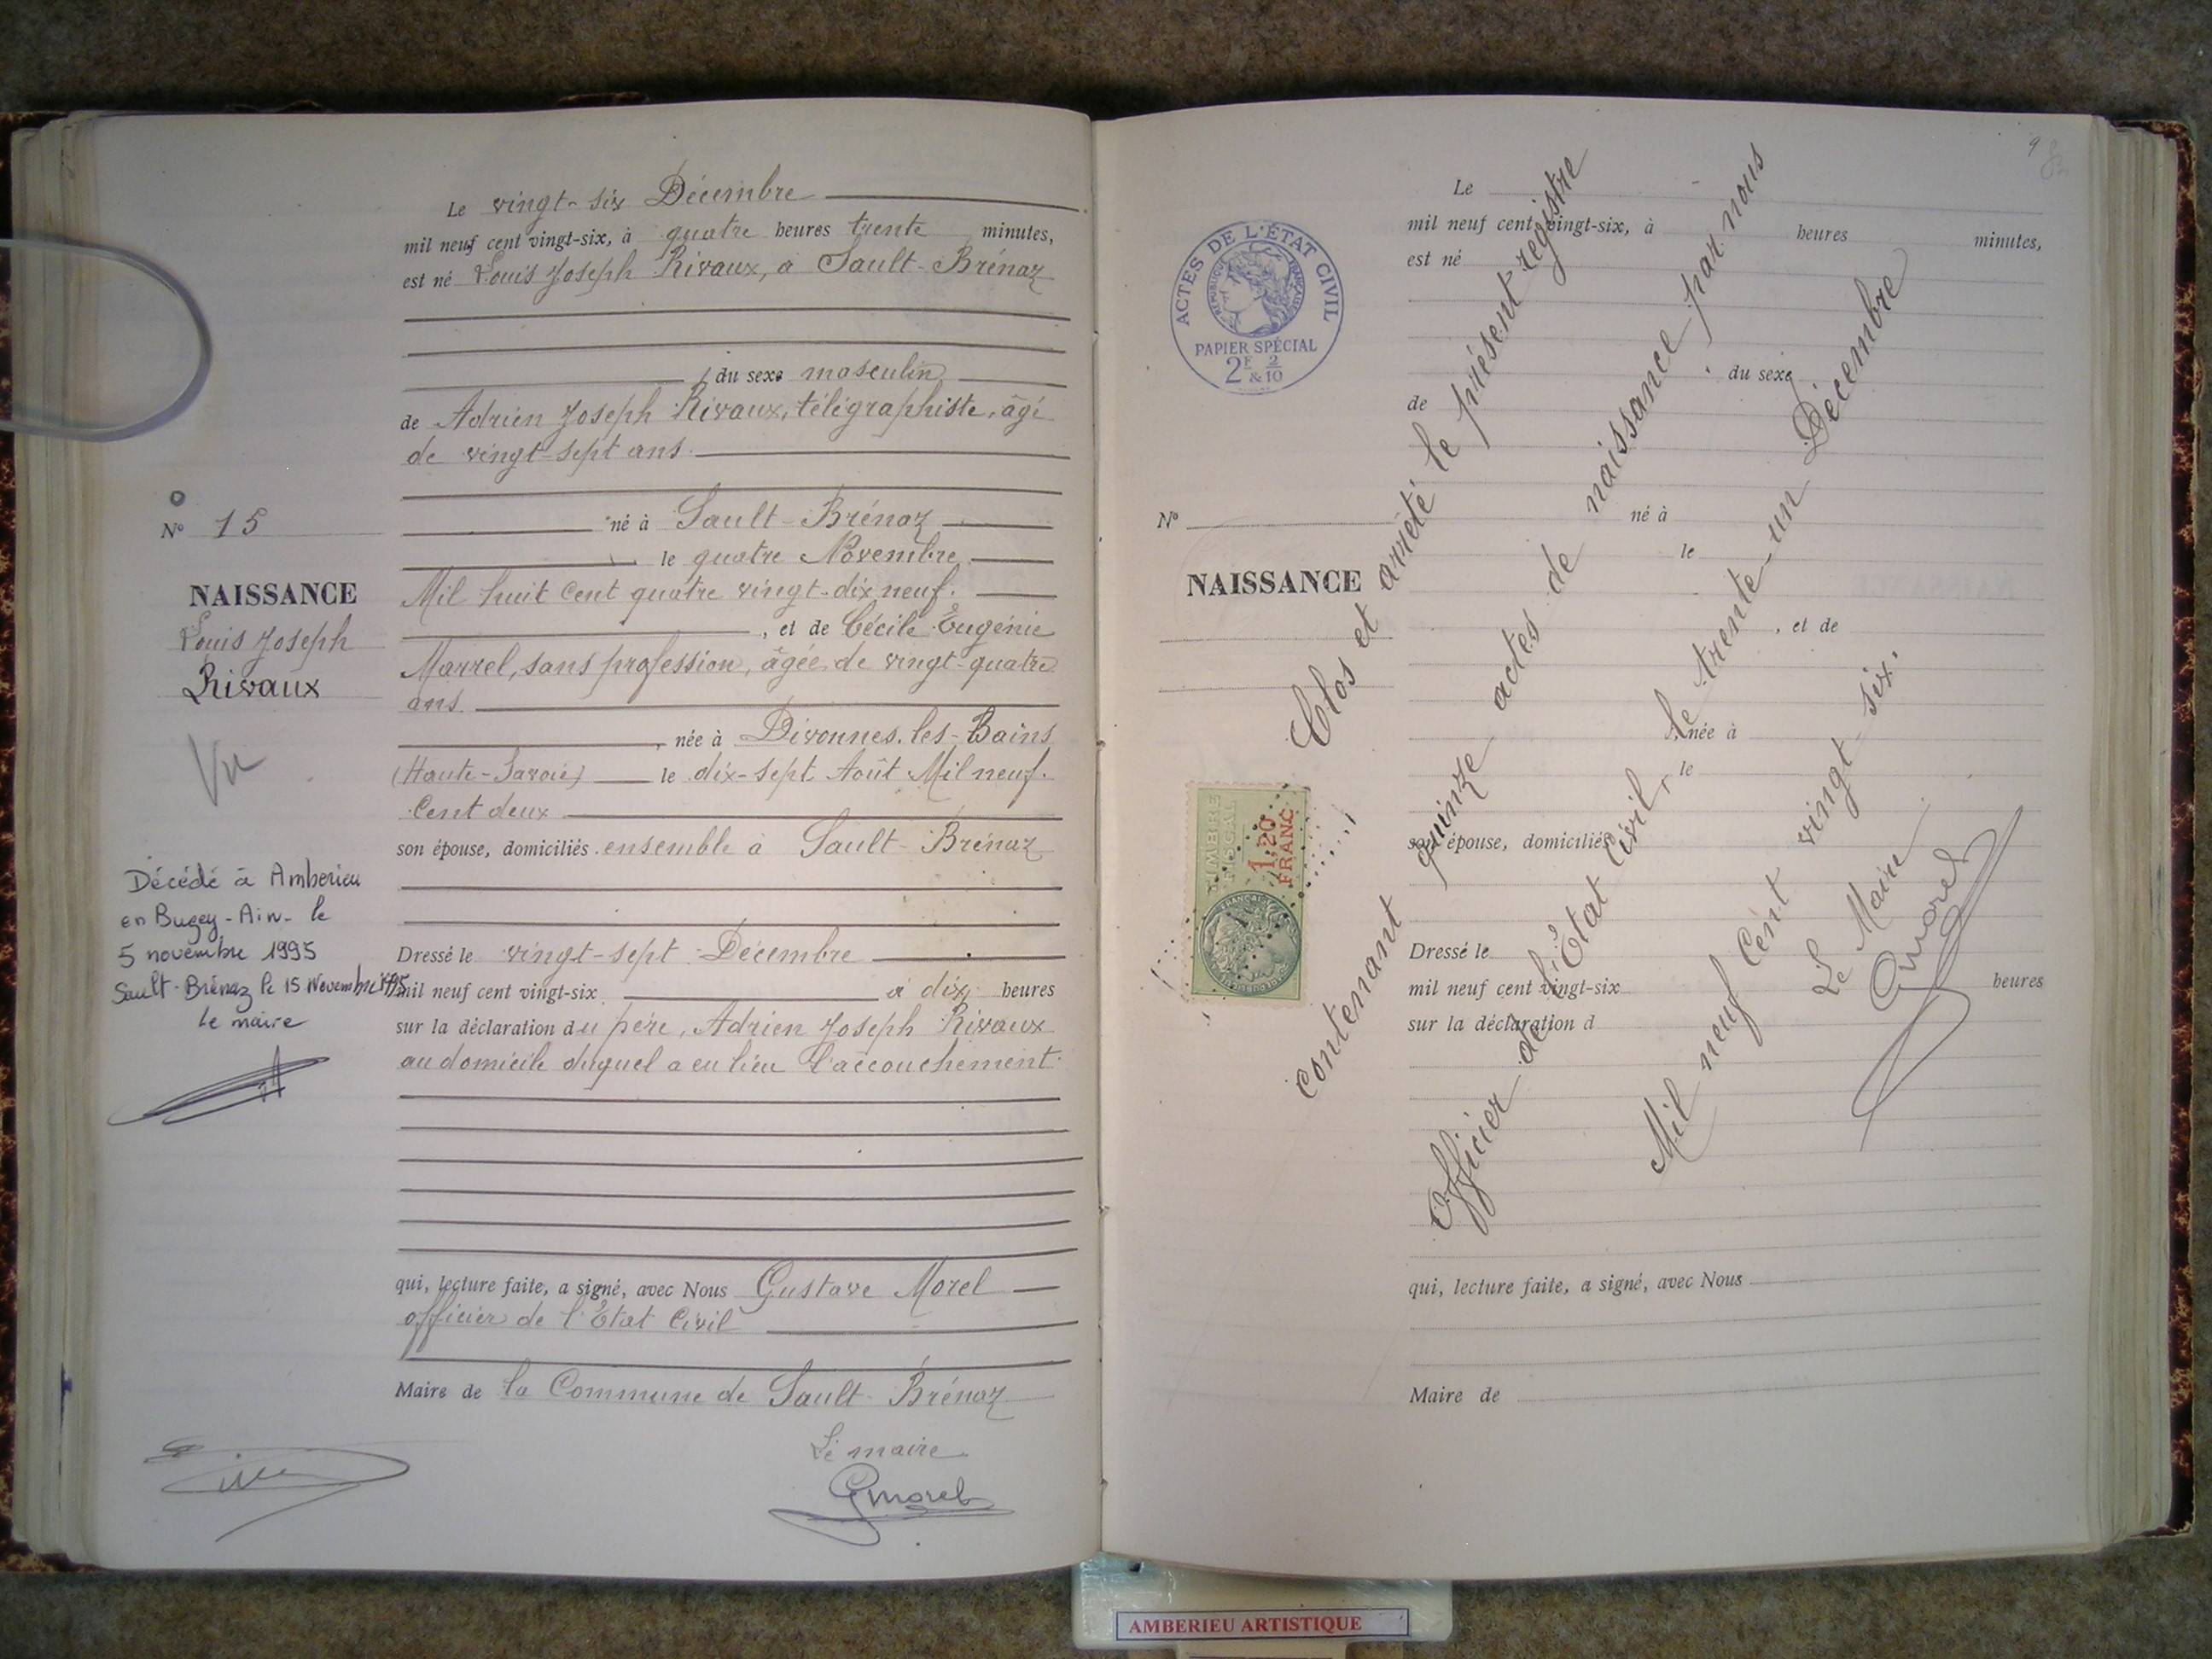 Le vingt-six Décembre
mil neuf cent vingt-six, à quatre heures trente minutes,
est né Louis Joseph Rivaux, à Sault-Brénaz
, du sexe masculin
de Adrien Joseph Rivaux, télégraphiste, âgé
de vingt-sept ans
né à Sault-Brénaz
le quatre Novembre
Mil huit Cent quatre vingt-dix neuf.
, et de Cécile Eugénie
Marrel, sans profession, âgée de vingt-quatre
ans
, née à Divonnes-les-Bains
(Haute-Savoie) le dix-sept Août Mil neuf
Cent deux
son épouse, domiciliés ensemble à Sault-Brénaz
Dressé le vingt-sept Décembre
mil neuf cent vingt-six à dix heures
sur la déclaration du père, Adrien Joseph Rivaux
au domicile duquel a eu lieu l'accouchement
qui, lecture faite, a signé, avec Nous Gustave Morel
officier de l'Etat Civil
Maire de la Commune de Sault-Brénaz
Le maire
GMorel
No 15
NAISSANCE
Louis Joseph
Rivaux
Vu
Décédé à Amberieu
en Bugey-Ain- le
5 novembre 1995
Sault-Brénaz le 15 Novembre 1995
le maire
9
ACTES DE L'ÉTAT CIVIL
RÉPUBLIQUE FRANÇAISE
PAPIER SPÉCIAL
2F & 2/10
Le
mil neuf cent vingt-six, à heures minutes,
est né
du sexe
de
No
né à
le
NAISSANCE
, et de
, née à
le
son épouse, domiciliés
Dressé le
mil neuf cent vingt-six heures
sur la déclaration d
qui, lecture faite, a signé, avec Nous
Maire de
Clos et arrêté le présent registre
contenant quinze actes de naissance par nous
Officier de l'Etat Civil, le trente-un Décembre
Mil neuf Cent vingt-six.
Le Maire
GMorel
TIMBRE
FISCAL
1,20
FRANC
AMBERIEU ARTISTIQUE